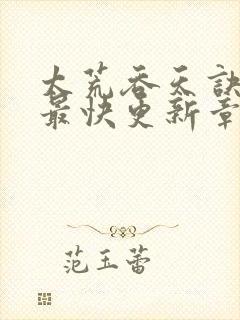 大荒吞天诀
最快更新章
范玉蕾